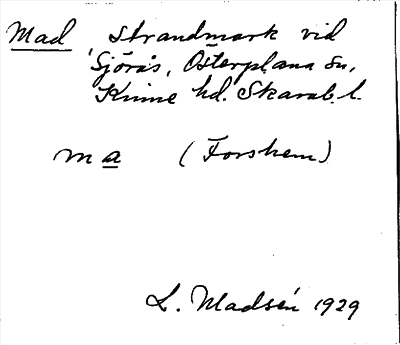 Mad, strandmark vid
Sjörås, Österplana sn,
Kinne hd. Skarab. l.
ma (Forshem)
L. Madsén 1929